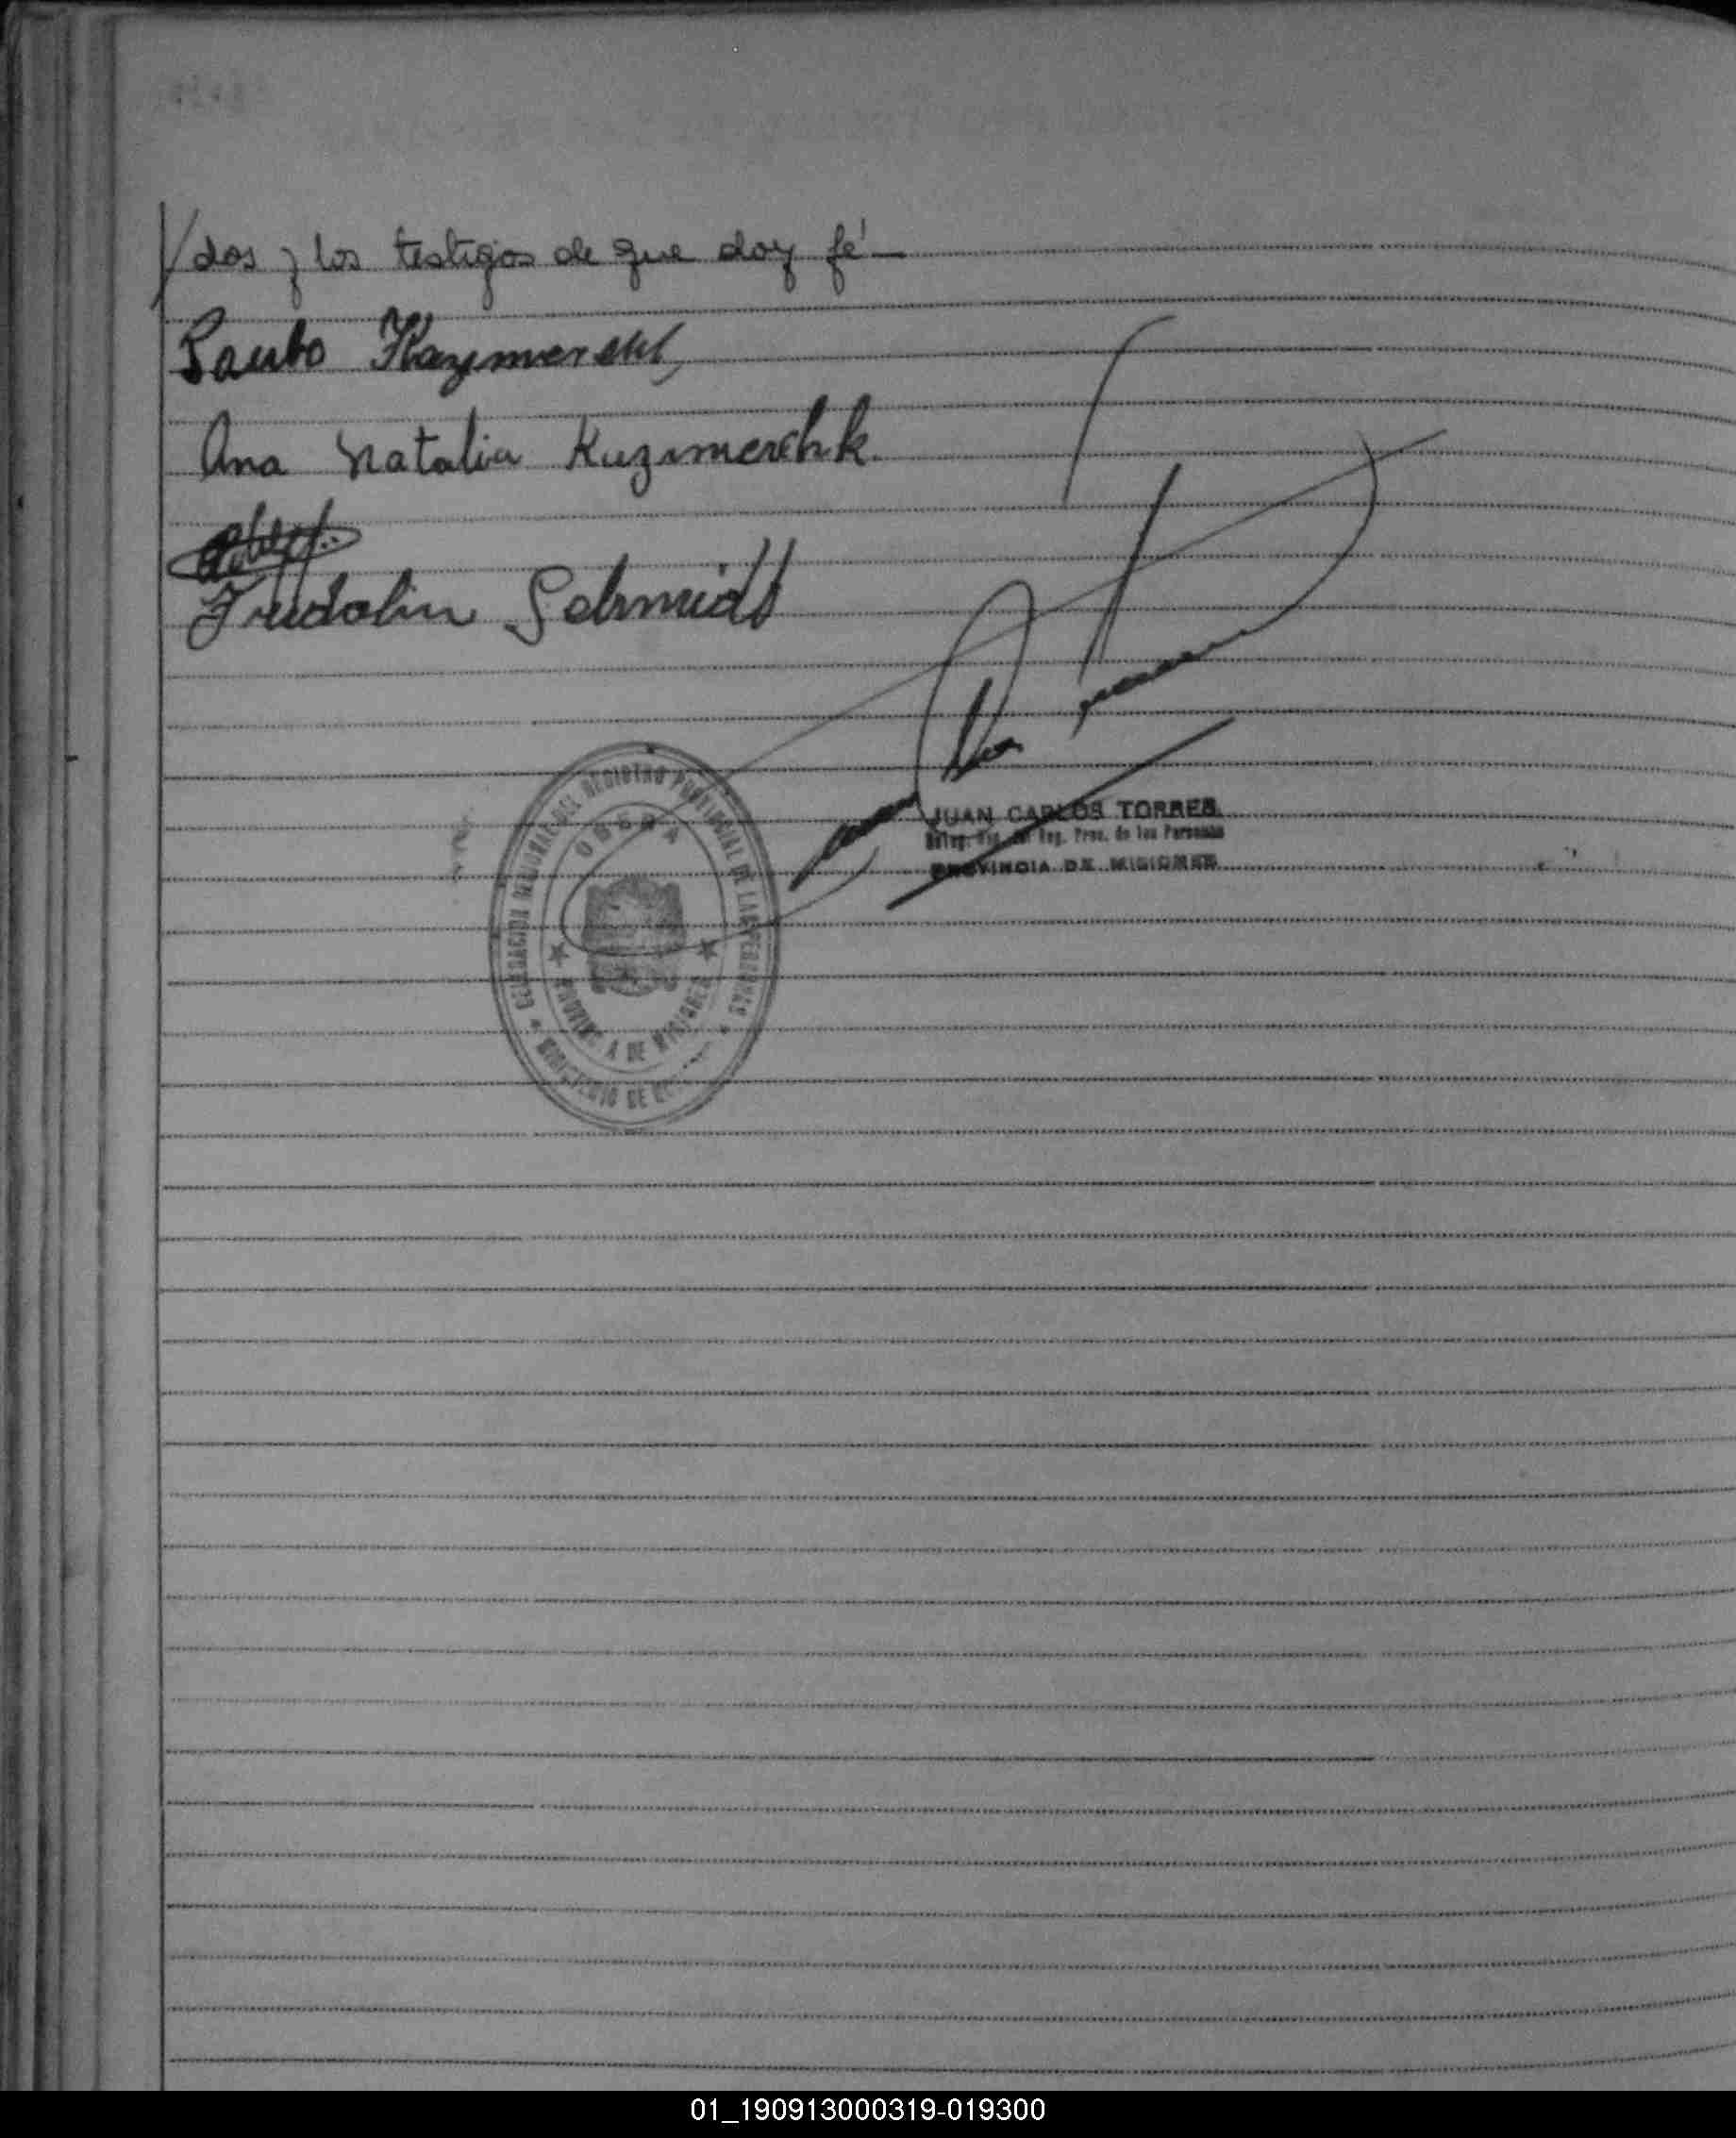 /dos y los testigos de que doy fé—
Kazimerski
Ana Natalia Kuzimerchk.
Fridolin Schmidt
DELEGACION REGIONAL DEL REGISTRO PROVINCIAL DE LAS PERSONAS
OBERA
PROVINCIA DE MISIONES
MINISTERIO DE
JUAN CARLOS TORRES
Reg. Prov. de las Personas
PROVINCIA DE MISIONES
01_190913000319-019300